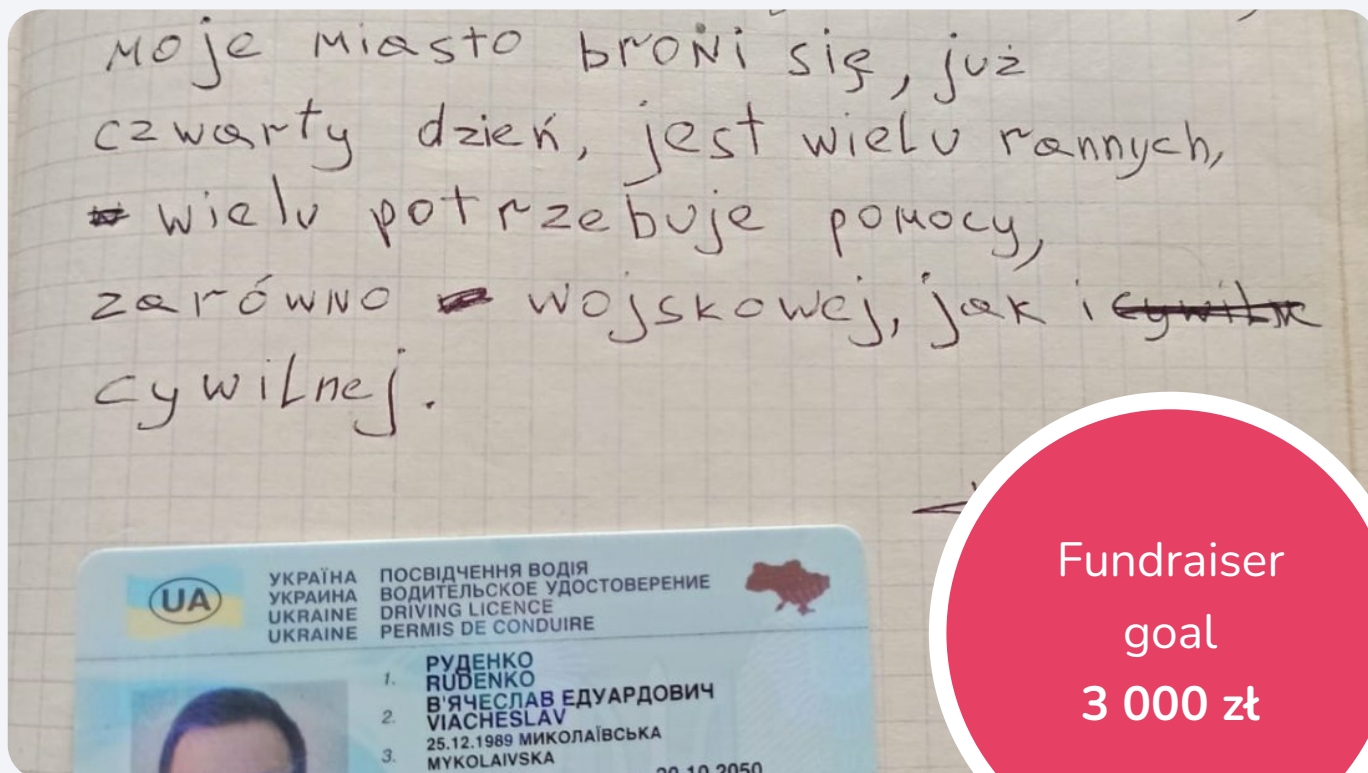 moje miasto broni się, już
czwarty dzień, jest wielu rannych,
wielu potrzebuje pomocy,
zarówno wojskowej, jak i
cywilnej.
UA
УКРАЇНА ПОСВІДЧЕННЯ ВОДІЯ
УКРАИНА ВОДИТЕЛЬСКОЕ УДОСТОВЕРЕНИЕ
UKRAINE DRIVING LICENCE
UKRAINE PERMIS DE CONDUIRE
1. РУДЕНКО
RUDENKO
2. В'ЯЧЕСЛАВ ЕДУАРДОВИЧ
VIACHESLAV
3. 25.12.1989 МИКОЛАЇВСЬКА
MYKOLAIVSKA
20.10.2050
Fundraiser
goal
3 000 zł